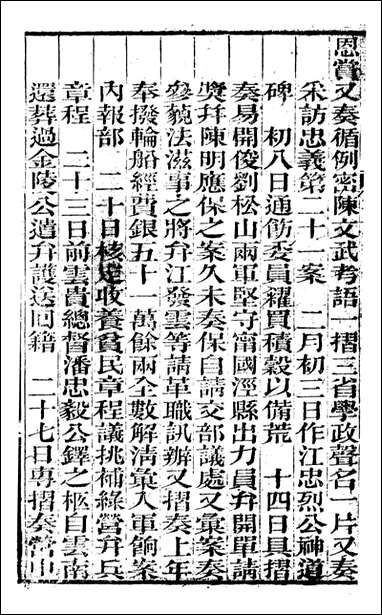 恩賞又奏循例密陳文武考語一摺三省學政聲名一片又奏
采訪忠義第二十一案　二月初三日作江忠烈公神道
碑　初八日通飭委員糴買積穀以備荒　十四日具摺
奏易開俊劉松山兩軍堅守甯國涇縣出力員弁開單請
獎幷陳明應保之案久未奏保自請交部議處又彙案奏
參藐法滋事之將弁江發雲等請革職訊辦又摺奏上年
奉撥輪船經費銀五十一萬餘兩全數解清彙入軍餉案
內報部　二十日核定收養貧民章程議挑補綠營弁兵
章程　二十三日前雲貴總督潘忠毅公鐸之柩自雲南
還葬過金陵公遣弁護送回籍　二十七日專摺奏營中